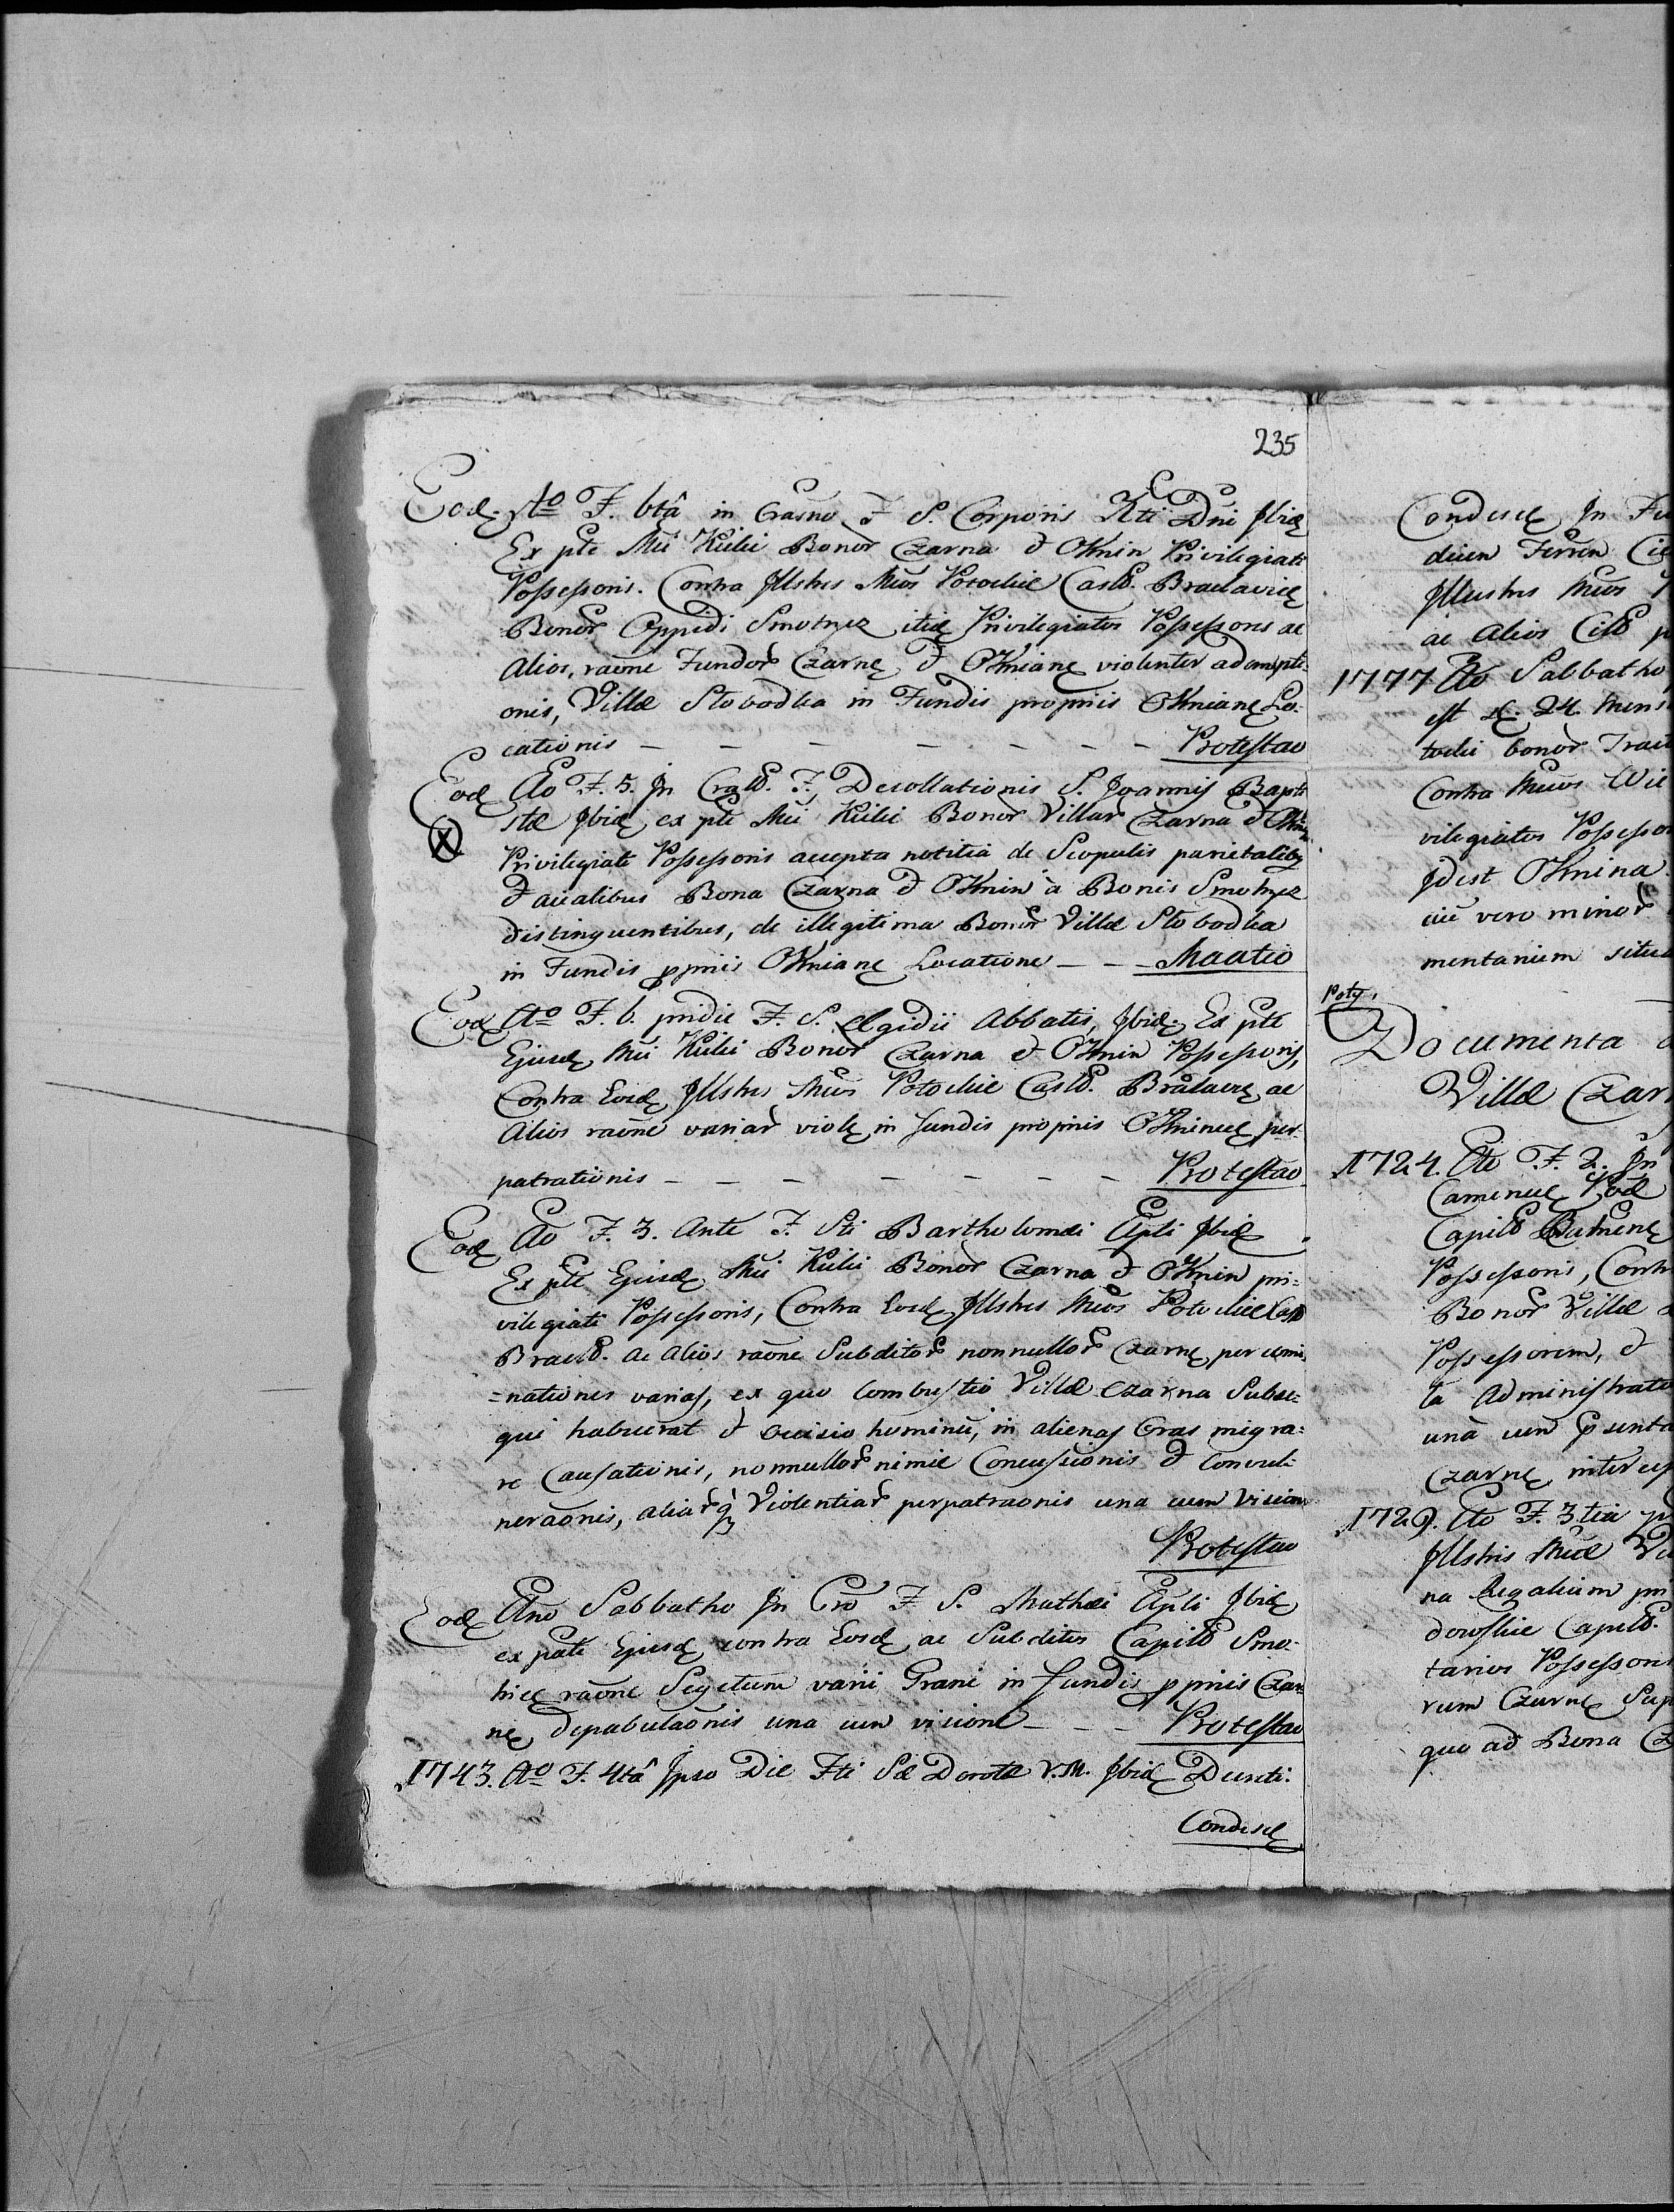 235
Eod. Ao F. 6tâ in Crasno F. S. Corporis Xti Dni Ibid
Ex pte Mci Kicki Bonor Czarna et Oknin Privilegiati
Possessoris. Contra Illstres Mcos Potockie Castd. Braclavien
Bonor Oppidi Smotrycz itid Privilegiatos Possessores ac
Alios, raone Fundor Czarne et Okniane violenter adempti-
onis, Villæ Slobodka in Fundis propriis Okniane Lo-
cationis — — — — — — — Protestao
Eod Ao F. 5. In Crast. F. Decollationis S. Joannis Bapti
stæ Ibid, ex pte Mci Kicki Bonor Villar Czarna et Oknin
Privilegiati Possessoris accepta notitia de Scopulis parietalibq
et acialibus Bona Czarna et Oknin à Bonis Smotrycz
distinguentibus, de illegitima Bonor Villæ Slobodka
in Fundis ppriis Okniane Locatione — — Maatio
Eod Ao F. 6. pridie F. S. Ægidii Abbatis, Ibid. Ex pte
Ejusd Mci Kicki Bonor Czarna et Oknin Possessoris,
Contra Eosd Illstres Mcos Potockie Castd. Braclavien ac
Alios raone variar viol in fundis propriis per-
patrationis — — — — — — Protestao
Eod Ao F. 3. Ante F. Sti Bartholomæi Apli Ibid
Ex pte Ejusd Mci Kicki Bonor Czarna et Oknin pri=
vilegiati Possessoris, Contra Eosd Illstres Mcos Potockie Cast
Bracld. ac Alios raone Subditor nonnullor Czarne per
=nationes varias, ex quo Combustio Villæ Czarna Subse=
qui habuerat et occisio hominū, in alienas Oras migra=
re Causationis, nonnullor nimie Concussionis et Convul-
neraonis, aliarq Violentiar perpatraonis una cum Vision
Protestao
Eod Ano Sabbatho In Cro F. S. Mathæi Apli Ibid
ex parte Ejusd contra Eosd ac Subditos Capitd Smo-
tricen raone Segetum varii Grani in fundis ppriis Czar
ne depabulaonis una cum visione — — — Protestao
1743. Ao F. 4tâ Ipso Die Fti Sæ Dorotæ V. M. Ibid Ducti.
Condesc
Condesc In Fu
dicen Terren Cie
Illustres Mcos
ac Alios Citd p
1777 Ao Sabbatho
est d. 24. Mens
tockii bonor Tract
Contra Mcos Wil
vilegiatos Possesso
Idest Oknina
cie vero minor
mentarium situa
Poty.
Documenta
Villæ Czar
1724. Ao F. 2. In
Camenec Pod
Capitd
Possessoris, Contr
Bonor Villæ
Possessorem, et
la Administrato
unà cum
Czarne, intercep
1729. Ao F. 3tia p
Illstris Mcæ
na Regalium pri
dowskie Capitd.
tarios Possessor
rum Czarne Sup
quo ad Bona Cz